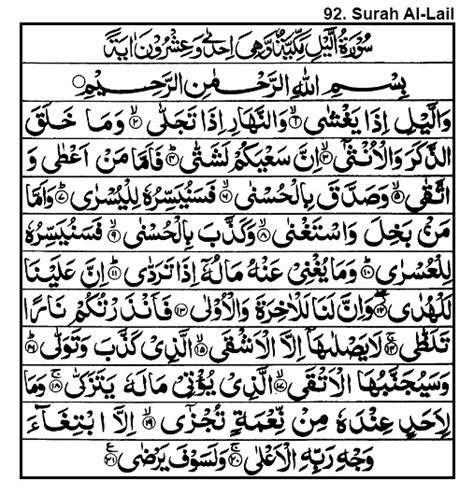 92. Surah Al-Lail
سُوْرَةُ الَّيْلِ مَكِّيَّةٌ وَّهِيَ اِحْدٰى وَعِشْرُوْنَ اٰيَةً
بِسْمِ اللّٰهِ الرَّحْمٰنِ الرَّحِيْمِ ○
وَالَّيْلِ اِذَا يَغْشٰى ۙ‏﴿۱﴾ وَالنَّهَارِ اِذَا تَجَلّٰى ۙ‏﴿۲﴾ وَمَا خَلَقَ
الذَّكَرَ وَالْاُنْثٰٓى ۙ‏﴿۳﴾ اِنَّ سَعْيَكُمْ لَشَتّٰى ؕ‏﴿۴﴾ فَاَمَّا مَنْ اَعْطٰى وَ
اتَّقٰى ۙ‏﴿۵﴾ وَصَدَّقَ بِالْحُسْنٰى ۙ‏﴿۶﴾ فَسَنُيَسِّرُهٗ لِلْيُسْرٰى ؕ‏﴿۷﴾ وَاَمَّا
مَنْۢ بَخِلَ وَاسْتَغْنٰى ۙ‏﴿۸﴾ وَكَذَّبَ بِالْحُسْنٰى ۙ‏﴿۹﴾ فَسَنُيَسِّرُهٗ
لِلْعُسْرٰى ؕ‏﴿۱۰﴾ وَمَا يُغْنِيْ عَنْهُ مَالُهٗٓ اِذَا تَرَدّٰى ؕ‏﴿۱۱﴾ اِنَّ عَلَيْنَا
لَلْهُدٰى ۖ‏﴿۱۲﴾ وَاِنَّ لَنَا لَلْاٰخِرَةَ وَالْاُوْلٰى ‏﴿۱۳﴾ فَاَنْذَرْتُكُمْ نَارًا
تَلَظّٰى ۚ‏﴿۱۴﴾ لَا يَصْلٰىهَآ اِلَّا الْاَشْقَى ۙ‏﴿۱۵﴾ الَّذِيْ كَذَّبَ وَتَوَلّٰى ؕ‏﴿۱۶﴾
وَسَيُجَنَّبُهَا الْاَتْقَى ۙ‏﴿۱۷﴾ الَّذِيْ يُؤْتِيْ مَالَهٗ يَتَزَكّٰى ۚ‏﴿۱۸﴾ وَمَا
لِاَحَدٍ عِنْدَهٗ مِنْ نِّعْمَةٍ تُجْزٰٓى ۙ‏﴿۱۹﴾ اِلَّا ابْتِغَآءَ
وَجْهِ رَبِّهِ الْاَعْلٰى ۚ‏﴿۲۰﴾ وَلَسَوْفَ يَرْضٰى ‏﴿۲۱﴾ ع